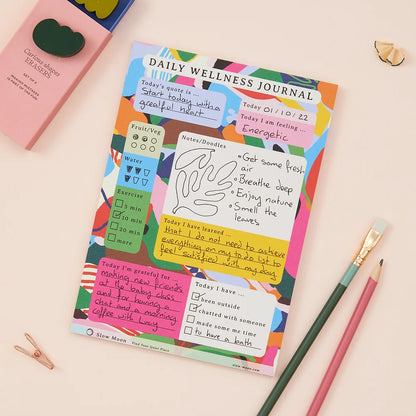 Curious shapes
ERASERS
SET OF 4
DAILY WELLNESS JOURNAL
Today's quote is ...
Start today with a
greatful heart
Today 01/10/22
Today I am feeling ...
Energetic
Fruit/Veg
Water
Exercise
5 min
10 min
20 min
more
Notes/Doodles
Get some fresh
air
Breathe deep
Enjoy nature
Smell the
leaves
Today I have learned ...
that I do not need to achieve
everything on my to do list to
feel satisfied with my day.
Today I'm grateful for
making new friends
at the baby class
and for having a
chat and a morning
coffee with Lucy
Today I have ...
been outside
chatted with someone
made some me time
to have a bath
Slow Moon
Find Your Quiet Place
slow-moon.com